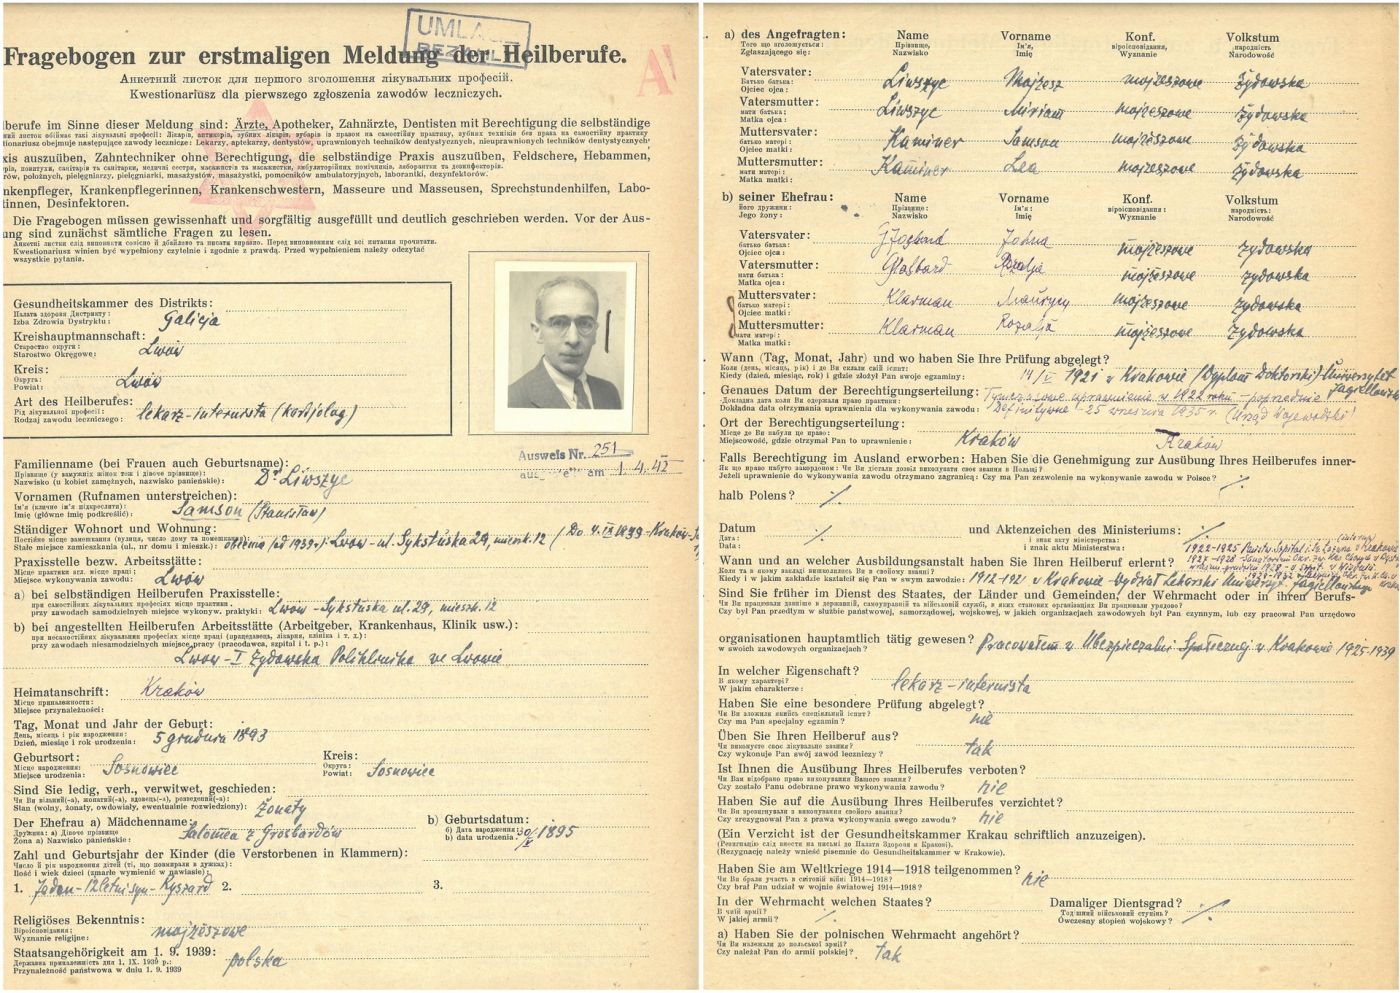 UMLAGE
BEZAHLT
Fragebogen zur erstmaligen Meldung der Heilberufe.
Анкетний листок для першого зголошення лікувальних професій.
Kwestionariusz dla pierwszego zgłoszenia zawodów leczniczych.
lberufe im Sinne dieser Meldung sind: Ärzte, Apotheker, Zahnärzte, Dentisten mit Berechtigung die selbständige
tionariusz obejmuje następujące zawody lecznicze: Lekarzy, aptekarzy, dentystów, uprawnionych techników dentystycznych, nieuprawnionych techników dentystycznych,
xis auszuüben, Zahntechniker ohne Berechtigung, die selbständige Praxis auszuüben, Feldschere, Hebammen,
rów, położnych, pielęgniarzy, pielęgniarki, masażystów, masażystki, pomocników ambulatoryjnych, laborantki, dezynfektorów.
nkenpfleger, Krankenpflegerinnen, Krankenschwestern, Masseure und Masseusen, Sprechstundenhilfen, Labo-
tinnen, Desinfektoren.
Die Fragebogen müssen gewissenhaft und sorgfältig ausgefüllt und deutlich geschrieben werden. Vor der Aus-
ung sind zunächst sämtliche Fragen zu lesen.
Анкетні листки слід виповняти совісно й дбайливо та писати виразно. Перед виповненням слід всі питання прочитати.
Kwestionariusz winien być wypełniony czytelnie i zgodnie z prawdą. Przed wypełnieniem należy odczytać
wszystkie pytania.
Gesundheitskammer des Distrikts:
Палата здоровя Дистрикту:
Izba Zdrowia Dystryktu: Galicja
Kreishauptmannschaft:
Староство округи:
Starostwo Okręgowe: Lwów
Kreis:
Округа:
Powiat: Lwów
Art des Heilberufes:
Рід лікувальної професії:
Rodzaj zawodu leczniczego: lekarz-internista (kardjolog)
Ausweis Nr. 251
am 1.4.42
Familienname (bei Frauen auch Geburtsname):
Прізвище (у замужніх жінок теж і дівоче прізвище):
Nazwisko (u kobiet zamężnych, nazwisko panieńskie): Dr Liwszyc
Vornamen (Rufnamen unterstreichen):
Ім'я (кличне ім'я підкреслити):
Imię (główne imię podkreślić): Samson (Stanisław)
Ständiger Wohnort und Wohnung:
Постійне місце замешкання (вулиця, число дому та помешкання):
Stałe miejsce zamieszkania (ul., nr domu i mieszk.): obecnie (od 1939 r.) Lwów - ul. Sykstuska 29, mieszk. 12 (Do 4.IX 1939 - Kraków-
Praxisstelle bezw. Arbeitsstätte:
Місце практики зглядно місце праці:
Miejsce wykonywania zawodu: Lwów
a) bei selbständigen Heilberufen Praxisstelle:
при самостійних лікувальних професіях місце практики.
przy zawodach samodzielnych miejsce wykonyw. praktyki: Lwów - Sykstuska ul. 29, mieszk. 12
b) bei angestellten Heilberufen Arbeitsstätte (Arbeitgeber, Krankenhaus, Klinik usw.):
при несамостійних лікувальних професіях місце праці (працедавець, лікарня, клініка і т. д.):
przy zawodach niesamodzielnych miejsce pracy (pracodawca, szpital i t. p.):
Lwów - I Żydowska Poliklinika we Lwowie
Heimatanschrift: Kraków
Місце приналежности:
Miejsce przynależności:
Tag, Monat und Jahr der Geburt:
День, місяць і рік народження:
Dzień, miesiąc i rok urodzenia: 5 grudnia 1893
Geburtsort: Kreis:
Місце народження: Округа:
Miejsce urodzenia: Sosnowiec Powiat: Sosnowiec
Sind Sie ledig, verh., verwitwet, geschieden:
Чи Ви вільний(-а), жонатий(-а), вдовець(-а), розведений(-а):
Stan (wolny, żonaty, owdowiały, ewentualnie rozwiedziony): żonaty
Der Ehefrau a) Mädchenname: b) Geburtsdatum:
Дружина: а) Дівоче прізвище б) Дата народження
Żona a) Nazwisko panieńskie: Salomea z Grosbardów b) data urodzenia 30/ 1895
Zahl und Geburtsjahr der Kinder (die Verstorbenen in Klammern):
Число й рік народження дітей (ті, що повмирали в дужках):
Ilość i wiek dzieci (zmarłe wymienić w nawiasie):
1. Jeden - 12letni syn - Ryszard 2. 3.
Religiöses Bekenntnis:
Віроісповідання:
Wyznanie religijne: mojżeszowe
Staatsangehörigkeit am 1. 9. 1939:
Державна приналежність дня 1. IX. 1939 р.:
Przynależność państwowa w dniu 1. 9. 1939 polska
a) des Angefragten: Name Vorname Konf. Volkstum
Того що зголошується: Прізвище, Ім'я, віроісповідання, народність
Zgłaszającego się: Nazwisko Imię Wyznanie Narodowość
Vatersvater:
батько батька:
Ojciec ojca: Liwszyc Mojżesz mojżeszowe żydowska
Vatersmutter:
мати батька:
Matka ojca: Liwszyc Miriam mojżeszowe żydowska
Muttersvater:
батько матері:
Ojciec matki: Kaminer Samson mojżeszowe żydowska
Muttersmutter:
мати матері:
Matka matki: Kaminer Lea mojżeszowe żydowska
b) seiner Ehefrau: Name Vorname Konf. Volkstum
його дружини: Прізвище: Ім'я віроісповідання: народність:
Jego żony: Nazwisko Imię Wyznanie Narodowość
Vatersvater:
батько батька:
Ojciec ojca: mojżeszowe żydowska
Vatersmutter:
мати батька:
Matka ojca: Rozalja mojżeszowe żydowska
Muttersvater:
батько матері:
Ojciec matki: Klarman Maurycy mojżeszowe żydowska
Muttersmutter:
мати матері:
Matka matki: Klarman Rozalja mojżeszowe żydowska
Wann (Tag, Monat, Jahr) und wo haben Sie Ihre Prüfung abgelegt?
Коли (день, місяць, рік) і де Ви склали свій іспит:
Kiedy (dzień, miesiąc, rok) i gdzie złożył Pan swoje egzaminy: 14/V 1921 w Krakowie (Dyplom Doktorski) - Uniwersytet Jagielloński
Genaues Datum der Berechtigungserteilung: Tymczasowe uprawnienie w 1922 roku - poprzednie
Докладна дата коли Ви одержали право практики:
Dokładna data otrzymania uprawnienia dla wykonywania zawodu: Definitywne - 25 września 1935 r. (Urząd Wojewódzki)
Ort der Berechtigungserteilung:
Місце де Ви набули це право:
Miejscowość, gdzie otrzymał Pan to uprawnienie: Kraków Kraków
Falls Berechtigung im Ausland erworben: Haben Sie die Genehmigung zur Ausübung Ihres Heilberufes inner-
Як що право набуто закордоном: Чи Ви дістали дозвіл виконувати своє звання в Польщі?
Jeżeli uprawnienie do wykonywania zawodu otrzymano zagranicą: Czy ma Pan zezwolenie na wykonywanie zawodu w Polsce? ./.
halb Polens? ./.
Datum und Aktenzeichen des Ministeriums:
Дата: і знак акту міністерства:
Data: ./. i znak aktu Ministerstwa: ./.
Wann und an welcher Ausbildungsanstalt haben Sie Ihren Heilberuf erlernt?
Коли та в якому закладі вишколились Ви в своєму званні?
Kiedy i w jakim zakładzie kształcił się Pan w swym zawodzie: 1912-1921 w Krakowie - Wydział Lekarski Uniwersyt. Jagiellońskiego
Sind Sie früher im Dienst des Staates, der Länder und Gemeinden, der Wehrmacht oder in ihren Berufs-
Чи Ви працювали давніше в державній, самоуправній та військовій службі, в яких станових організаціях Ви працювали урядово?
Czy był Pan przedtym w służbie państwowej, samorządowej, wojskowej, w jakich organizacjach zawodowych był Pan czynnym, lub czy pracował Pan urzędowo
organisationen hauptamtlich tätig gewesen? Pracowałem w Ubezpieczalni Społecznej w Krakowie 1925-1939
w swoich zawodowych organizacjach?
In welcher Eigenschaft?
В якому характері?
W jakim charakterze: lekarz-internista
Haben Sie eine besondere Prüfung abgelegt?
Чи Ви зложили якийсь спеціяльний іспит?
Czy ma Pan specjalny egzamin? nie
Üben Sie Ihren Heilberuf aus?
Чи виконуєте своє лікувальне звання?
Czy wykonuje Pan swój zawód leczniczy? tak
Ist Ihnen die Ausübung Ihres Heilberufes verboten?
Чи Вам відобрано право виконування Вашого звання?
Czy zostało Panu odebrane prawo wykonywania zawodu? nie
Haben Sie auf die Ausübung Ihres Heilberufes verzichtet?
Чи Ви зрезигнували з виконування свого звання?
Czy zrezygnował Pan z prawa wykonywania swego zawodu? nie
(Ein Verzicht ist der Gesundheitskammer Krakau schriftlich anzuzeigen).
(Резигнацію слід внести на письмі до Палати Здоровя в Кракові).
(Rezygnację należy wnieść pisemnie do Gesundheitskammer w Krakowie).
Haben Sie am Weltkriege 1914—1918 teilgenommen?
Чи Ви брали участь в світовій війні 1914—1918?
Czy brał Pan udział w wojnie światowej 1914—1918? nie
In der Wehrmacht welchen Staates? Damaliger Dienstgrad?
В чиїй армії? Тодішній військовий ступінь?
W jakiej armii? ./. Ówczesny stopień wojskowy? ./.
a) Haben Sie der polnischen Wehrmacht angehört?
Чи Ви належали до польської армії?
Czy należał Pan do armii polskiej? tak